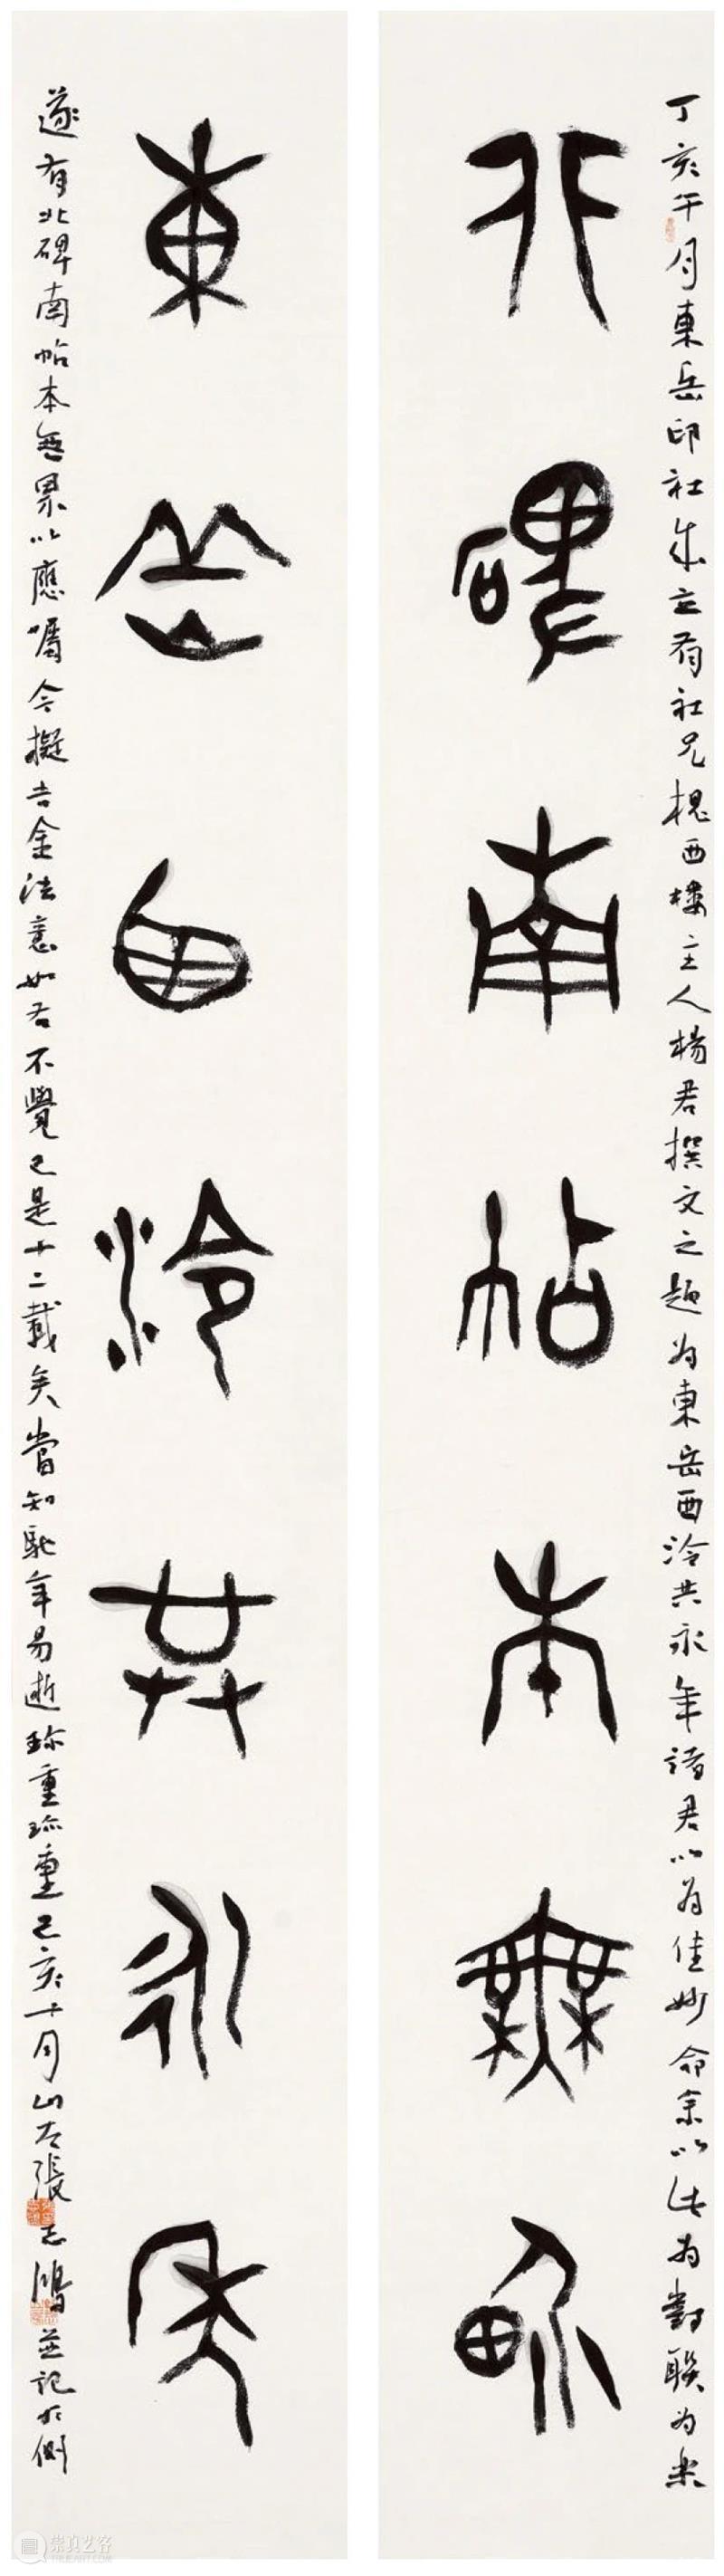 丁亥午月東岳印社成立有社兄槐西樓主人楊君撰文之題為東岳西泠共永年諸君以為佳妙命余以此為對聯為樂
北碑南帖本無界
東岳西泠共永年
遂有北碑南帖本無界以應囑今擬吉金法意如右不覺已是十二載矣當知馳年易逝珍重珍重己亥十月山左張志鴻並記於側
崇真艺客
TRUEART.COM